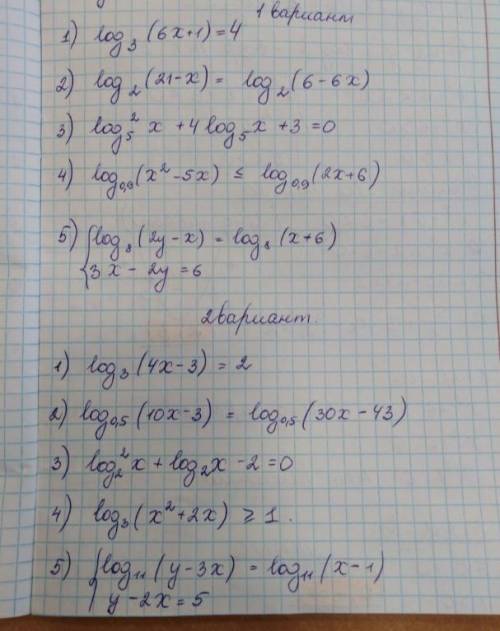 1 вариант
1) log₃(6x+1)=4
2) log₂(21-x) = log₂(6-6x)
3) log₅²x + 4log₅x + 3 = 0
4) log₀,₉(x²-5x) ≤ log₀,₉(2x+6)
5) {log₈(2y-x) = log₈(x+6)
3x - 2y = 6
2 вариант.
1) log₃(4x-3) = 2
2) log₀,₅(10x-3) = log₀,₅(30x-43)
3) log₂²x + log₂x - 2 = 0
4) log₃(x²+2x) ≥ 1.
5) {log₁₁(y-3x) = log₁₁(x-1)
y - 2x = 5